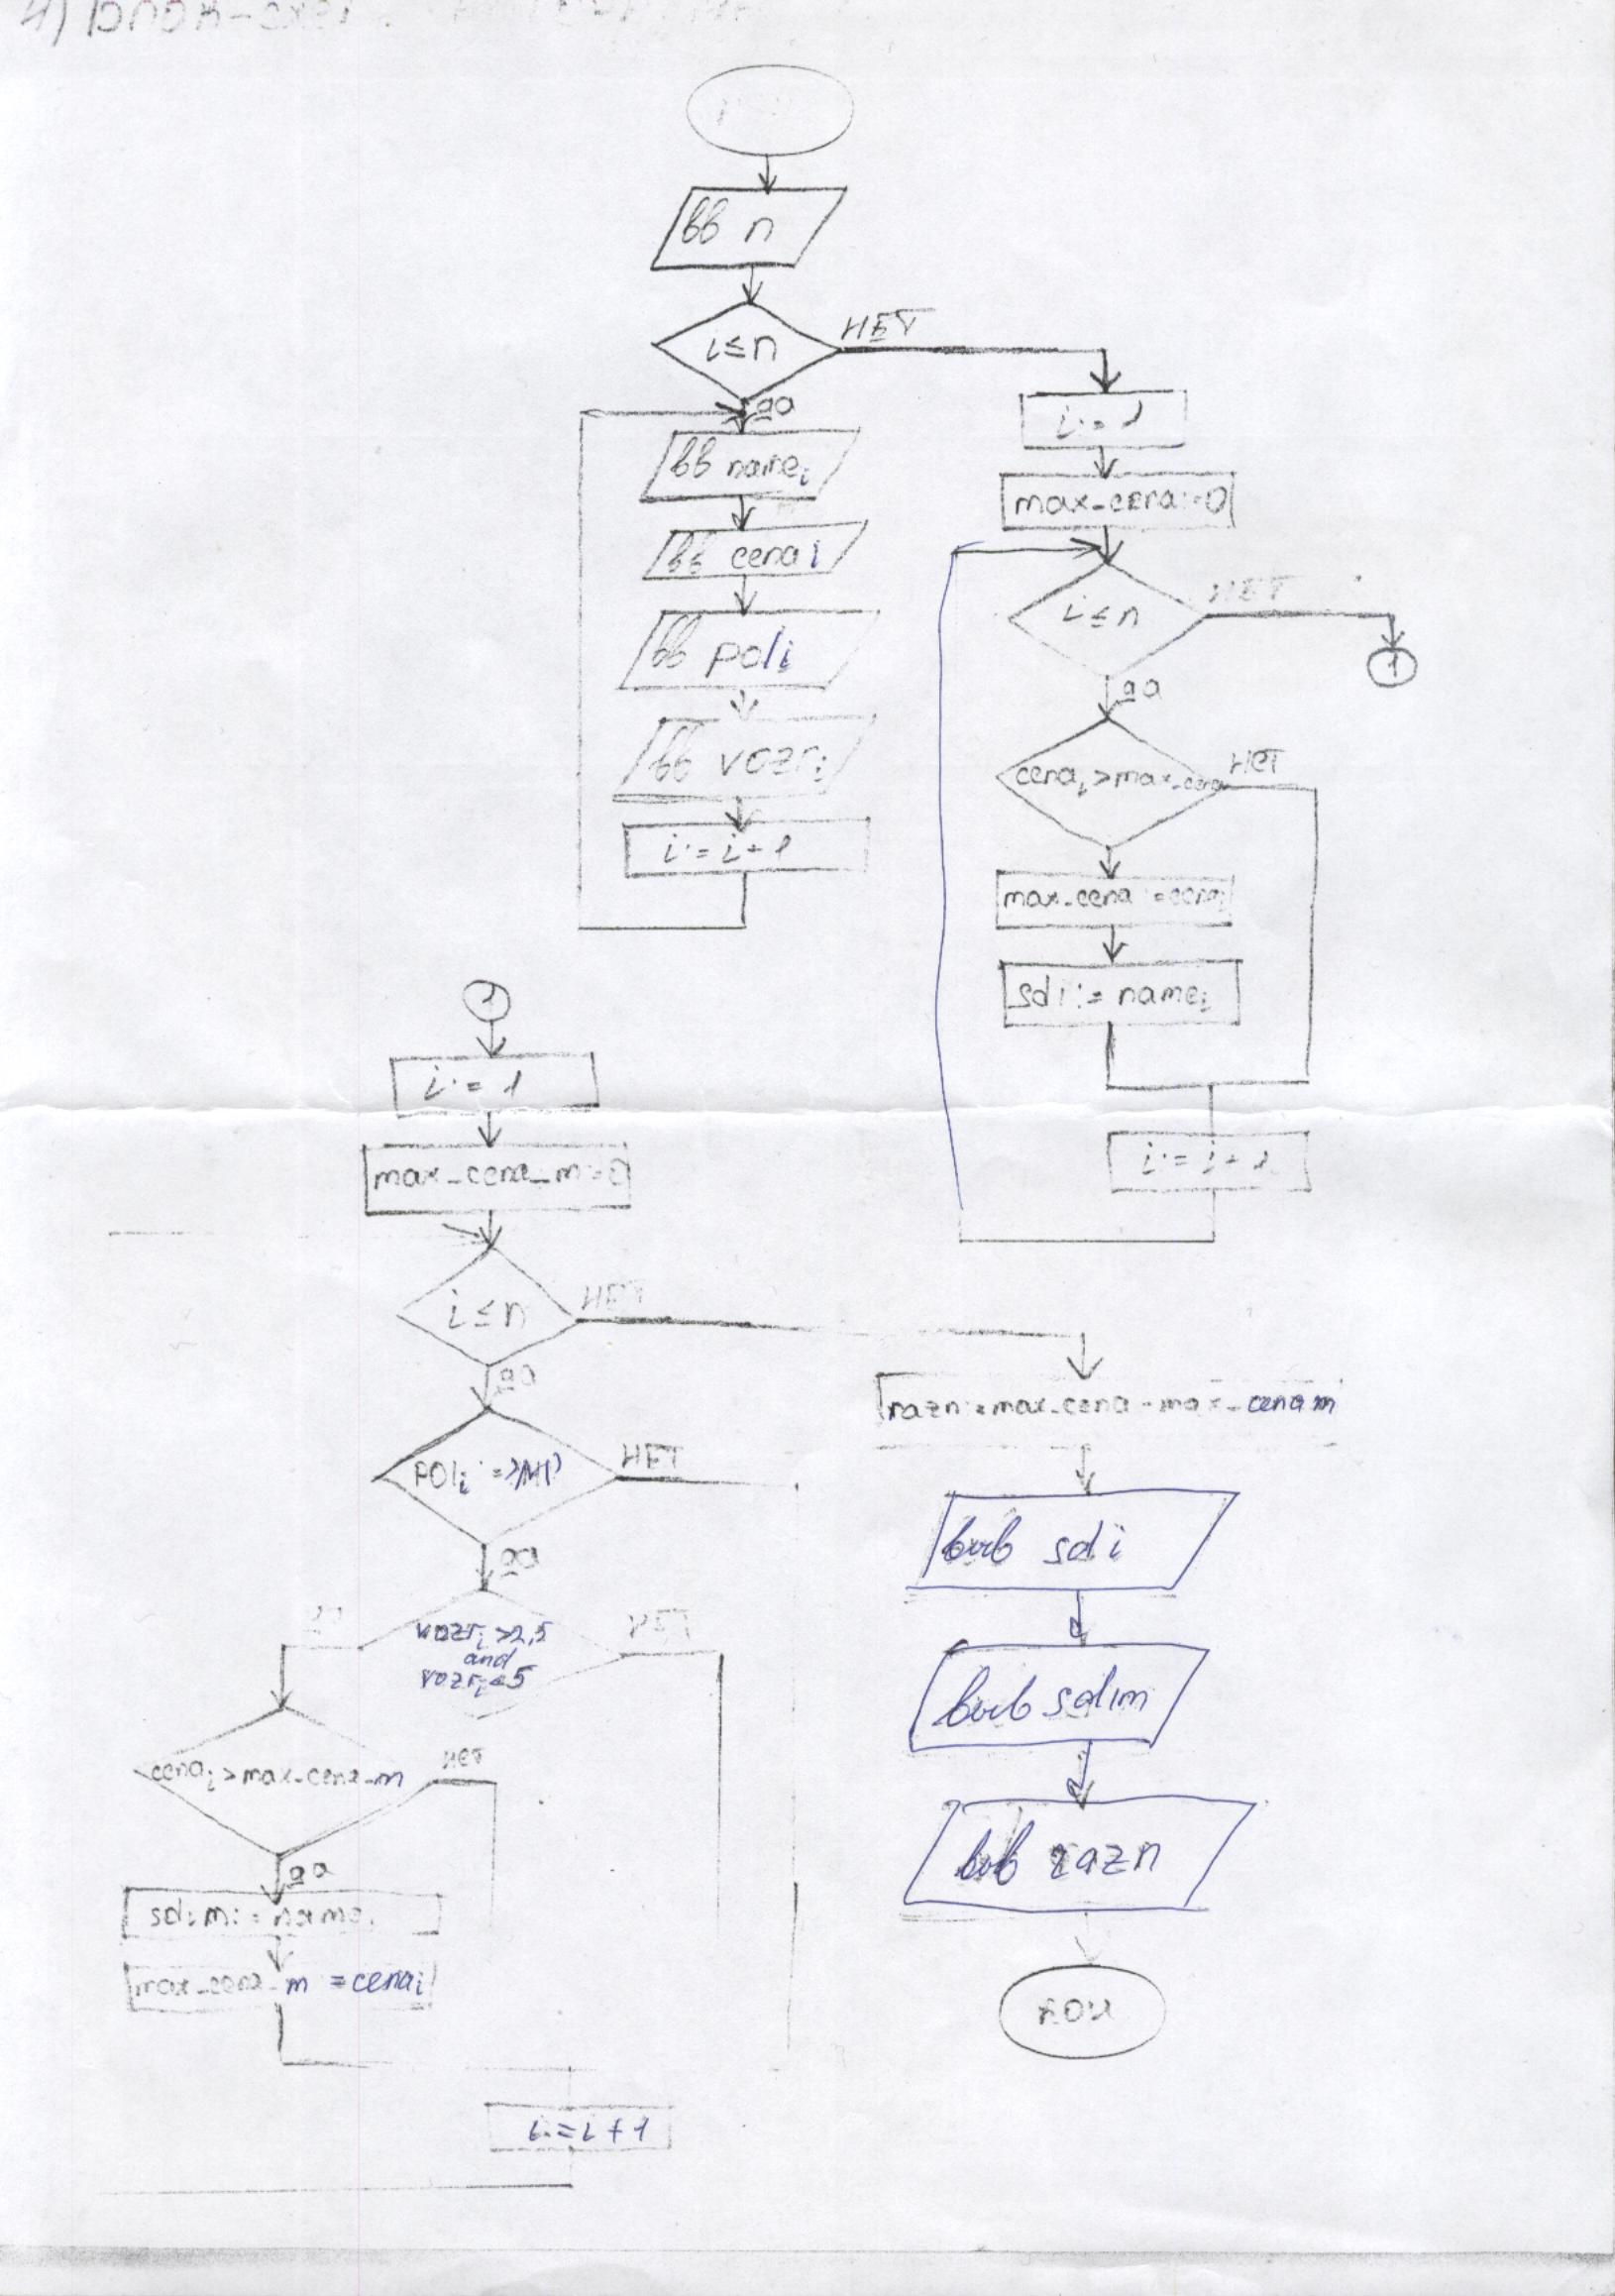 4) Блок-схема
вв n
i≤n
НЕТ
да
вв namei
вв cenai
вв poli
вв vozri
i:=i+1
i:=1
max_cena:=0
i≤n
НЕТ
1
да
cenai>max_cena
НЕТ
max_cena:=cenai
sdi:=namei
i:=i+1
1
i:=1
max_cena_m:=0
i≤n
НЕТ
да
НЕТ
да
vozri>2,5
and
vozri<5
НЕТ
cenai>max_cena_m
НЕТ
да
sdim:=namei
max_cena_m=cenai
i:=i+1
razn:=max_cena-max_cenam
выв sdi
выв sdim
выв razn
кон